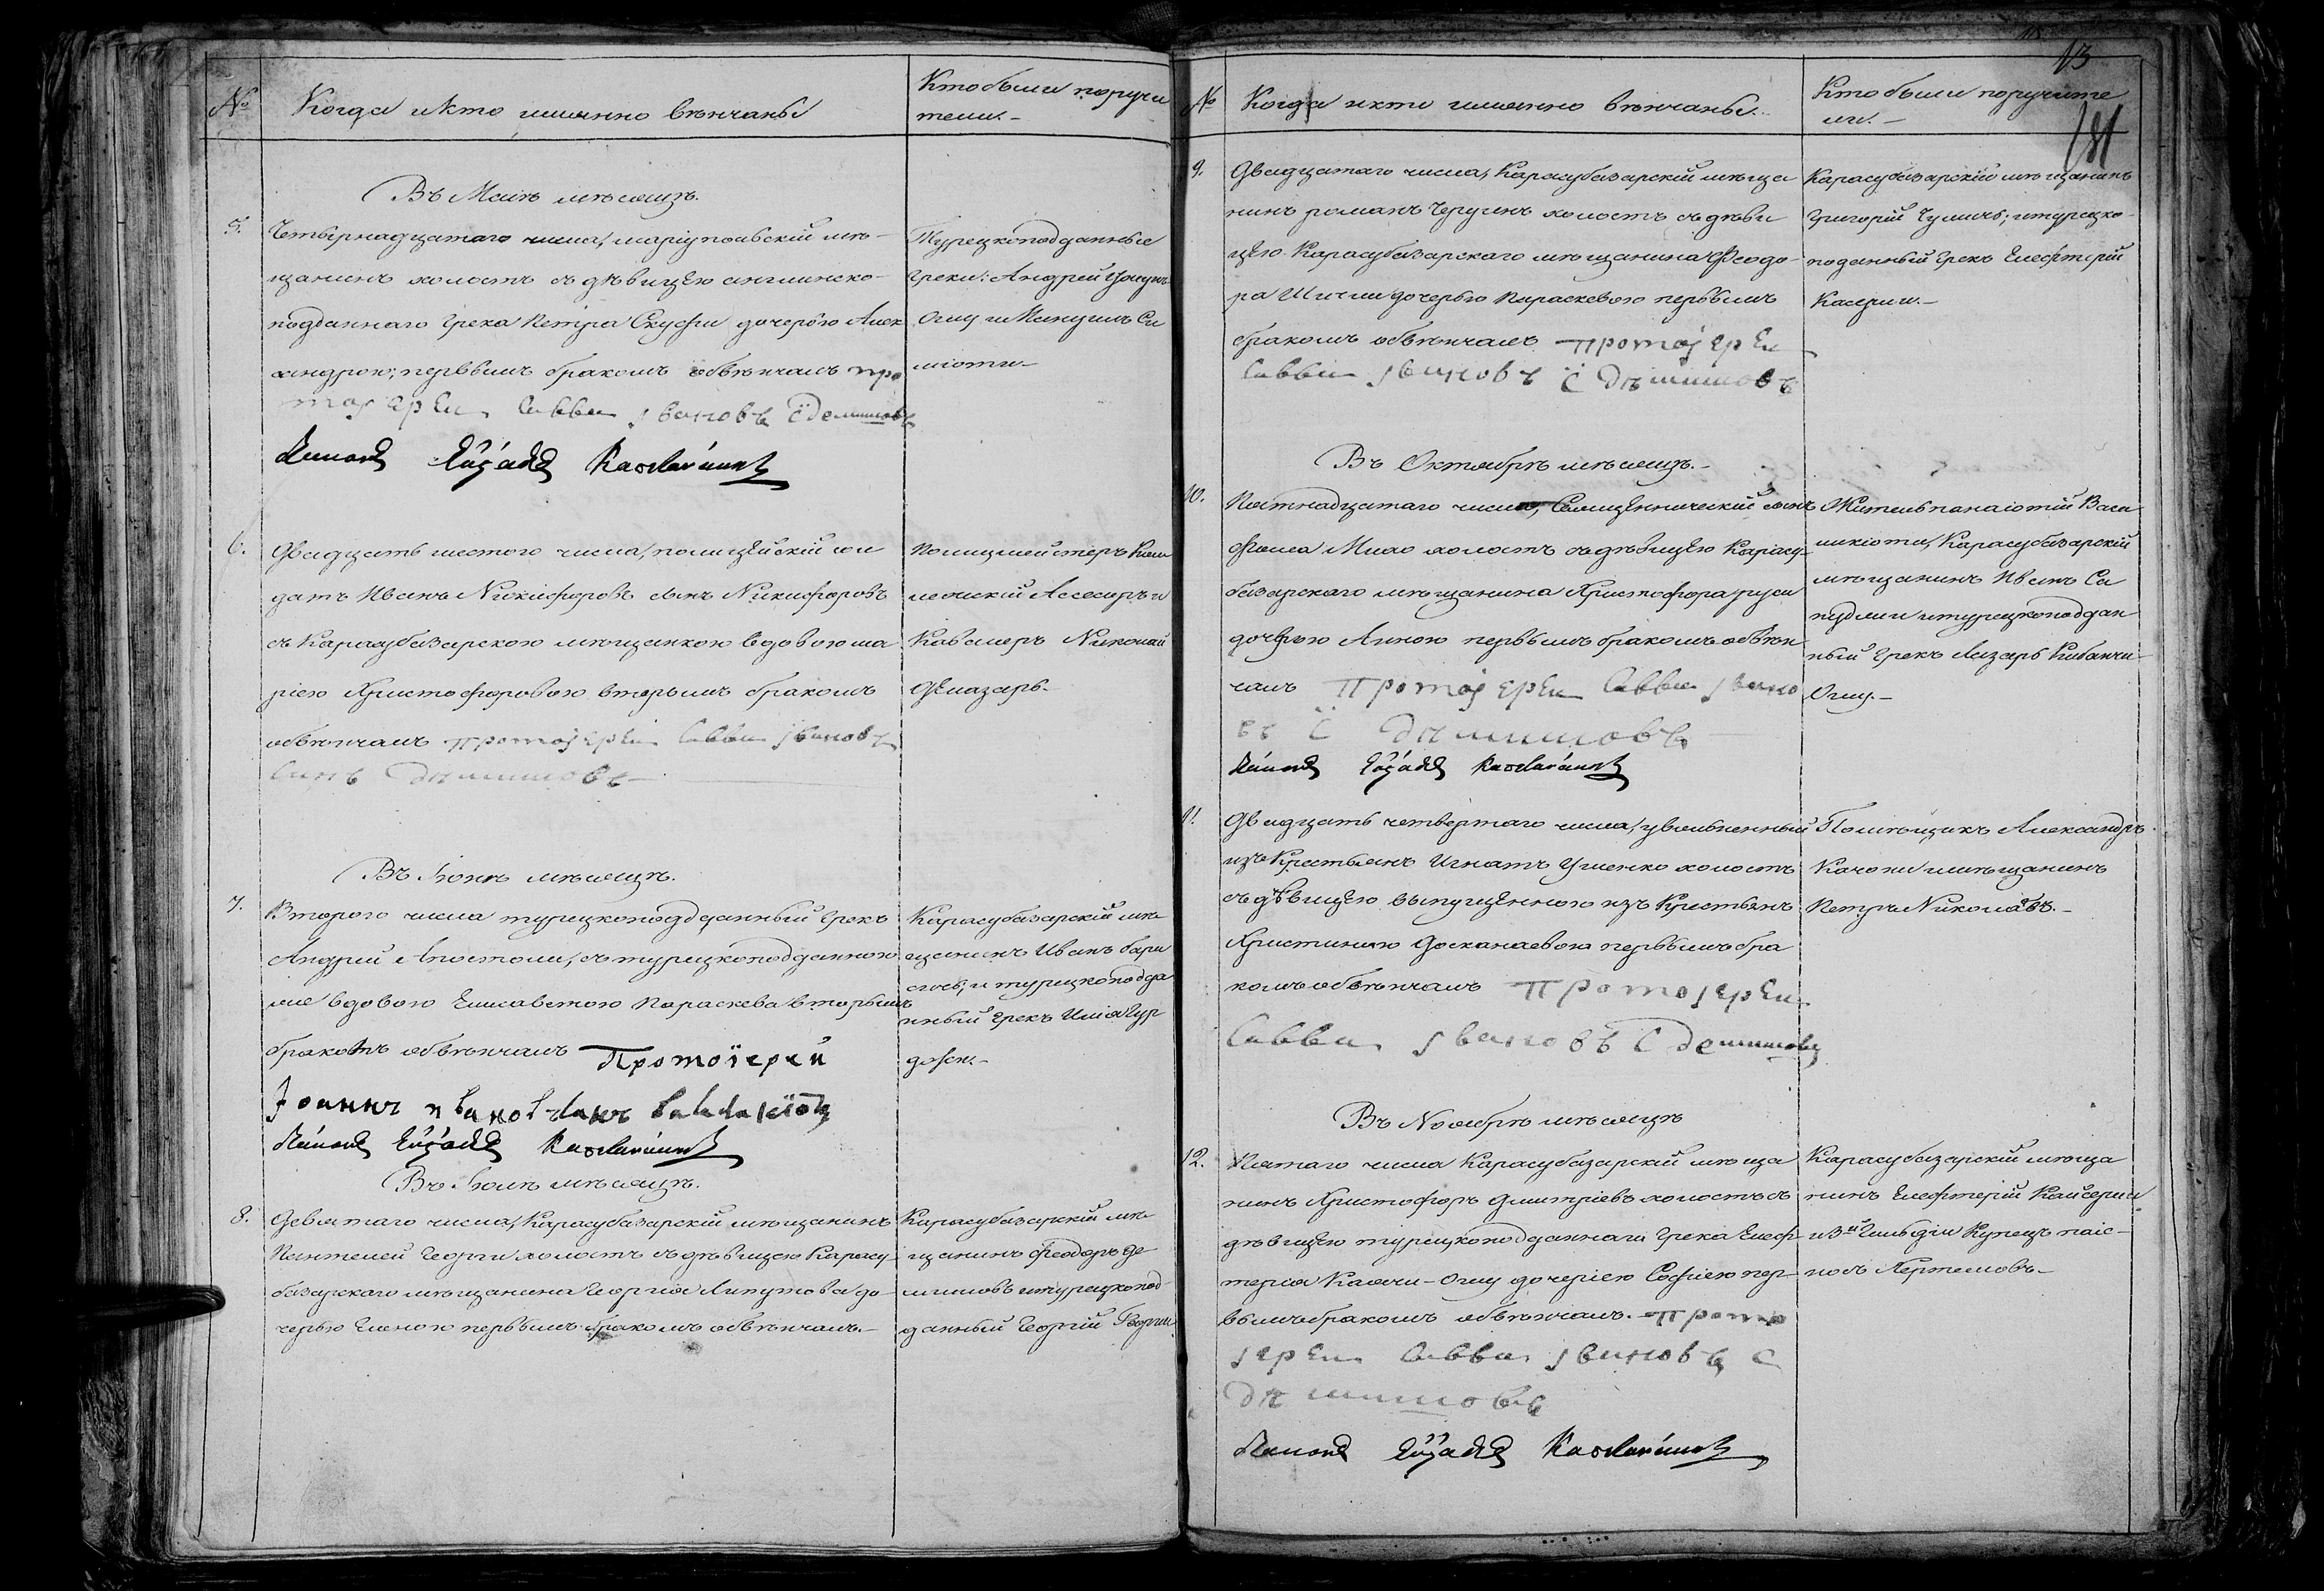 №
Когда и кто именно вѣнчаны
Кто были поручи
тели.-
Въ Маiѣ мѣсяцѣ.
5.
Четырнадцатаго числа, марiупольскiй мѣ-
щанинъ холостъ съ дѣвицею англинско-
подданнаго Грека Петра Скуфи дочерью Алек
сандрою; первымъ бракомъ обвѣнчалъ про
тоjереи Савва jвановъ С демишовъ
Турецкоподданные
Греки: Андрей
Оглу и Мануилъ Си
мiоти-
6.
Двадцать шестого числа, полицейскiй сол
датъ Иванъ Никифоровъ сынъ Никифоровъ
съ Карасубазарскою мѣщанкою вдовою ма
рiею Христофоровою вторымъ бракомъ
обвѣнчалъ протоjереи Савва jвановъ
Синъ дѣмишовъ
Полицмейстеръ Кол
лежскiй Асессоръ и
Кавалеръ Николай
Делазарь.-
Въ Iюнѣ мѣсяцѣ.
7.
Второго числа турецкоподданный Грекъ
Андрей Апостоли, съ турецкоподданною
же вдовою Елисаветою Параскева вторымъ
бракомъ обвѣнчалъ Протоiерей
Иоаннъ ивановъ
Карасубазарскiй мѣ
щанинъ Иванъ
и турецкоподда
нный Грекъ Илiя Гур
джи.-
Въ Iюлѣ мѣсяцѣ.
8.
Девятаго числа, Карасубазарскiй мѣщанинъ
Пантелей Георги холостъ съ дѣвицею Карасу-
базарскаго мѣщанина Георгiя Липутова до-
черью Еленою первымъ бракомъ обвѣнчалъ.-
Карасубазарскiй мѣ
щанинъ Феодоръ Де
мишовъ и турецкопод-
данный Георгiй Георги
13
181
№
Когда и кто именно вѣнчаны.
Кто были поручите
ли.-
9.
Двадцатаго числа, Карасубазарскiй мѣща
нинъ романъ Черугинъ холостъ съ дѣви
цею Карасубазарскаго мѣщанина Феодо-
ра Шичли дочерью Параскевою первымъ
бракомъ обвѣнчалъ протоjереи
Савва jвановъ С дѣмишовъ
Карасубазарскiй мѣщанинъ
Григорiй Чуличъ; и турецко-
поданный Грекъ Елефтерiй
Касерли.-
Въ Октябрѣ мѣсяцѣ.-
10.
Пятнадцатаго числа, Священническiй сынъ
Фома Михо холостъ съ дѣвицею Карасу-
базарскаго мѣщанина Христофора
дочерью Анною первымъ бракомъ обвѣн
чалъ протоjереи Савва jвано
въ С дѣмишовъ
Житель панаiотiй Васи
ликiоти, Карасубазарскiй
мѣщанинъ Иванъ Са
и турецкоподдан
ный Грекъ Лазарь
Оглу.-
11.
Двадцать четвертаго числа, уволенный
изъ Крестьянъ Игнатъ Ушенко холостъ
съ дѣвицею выпущенною изъ Крестьянъ
Христиною Досканаевою первымъ бра
комъ обвѣнчалъ протоjереи
Савва jвановъ С демишовъ
Помѣщикъ Александръ
Качони и мѣщанинъ
Петръ Николаевъ.-
Въ Ноябрѣ мѣсяцѣ
12.
Пятаго числа Карасубазарскiй мѣща
нинъ Христофоръ Дмитрiевъ холостъ съ
дѣвицею турецкоподданнаго Грека Елеф-
терiя Калачи-Оглу дочерiею Софiею пер-
вымъ бракомъ обвѣнчалъ.- прото
jереи Савва jвановъ С
дѣмишовъ
Карасубазарскiй мѣща
нинъ Елефтерiй Кайсерли
и 3-й Гильдiи Купецъ